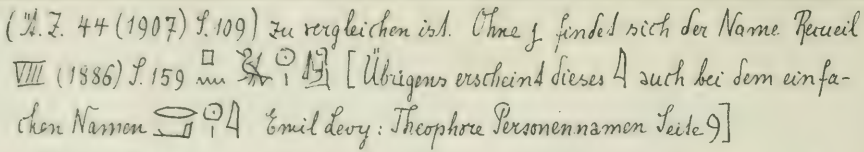 (Ä. Z. 44 (1907) S. 109) zu vergleichen ist. Ohne f findet sich der Name Recueil
VIII (1886) S. 159 [Übrigens erscheint dieses auch bei dem einfa-
chen Namen Emil Levy: Theophore Personennamen Seite 9]